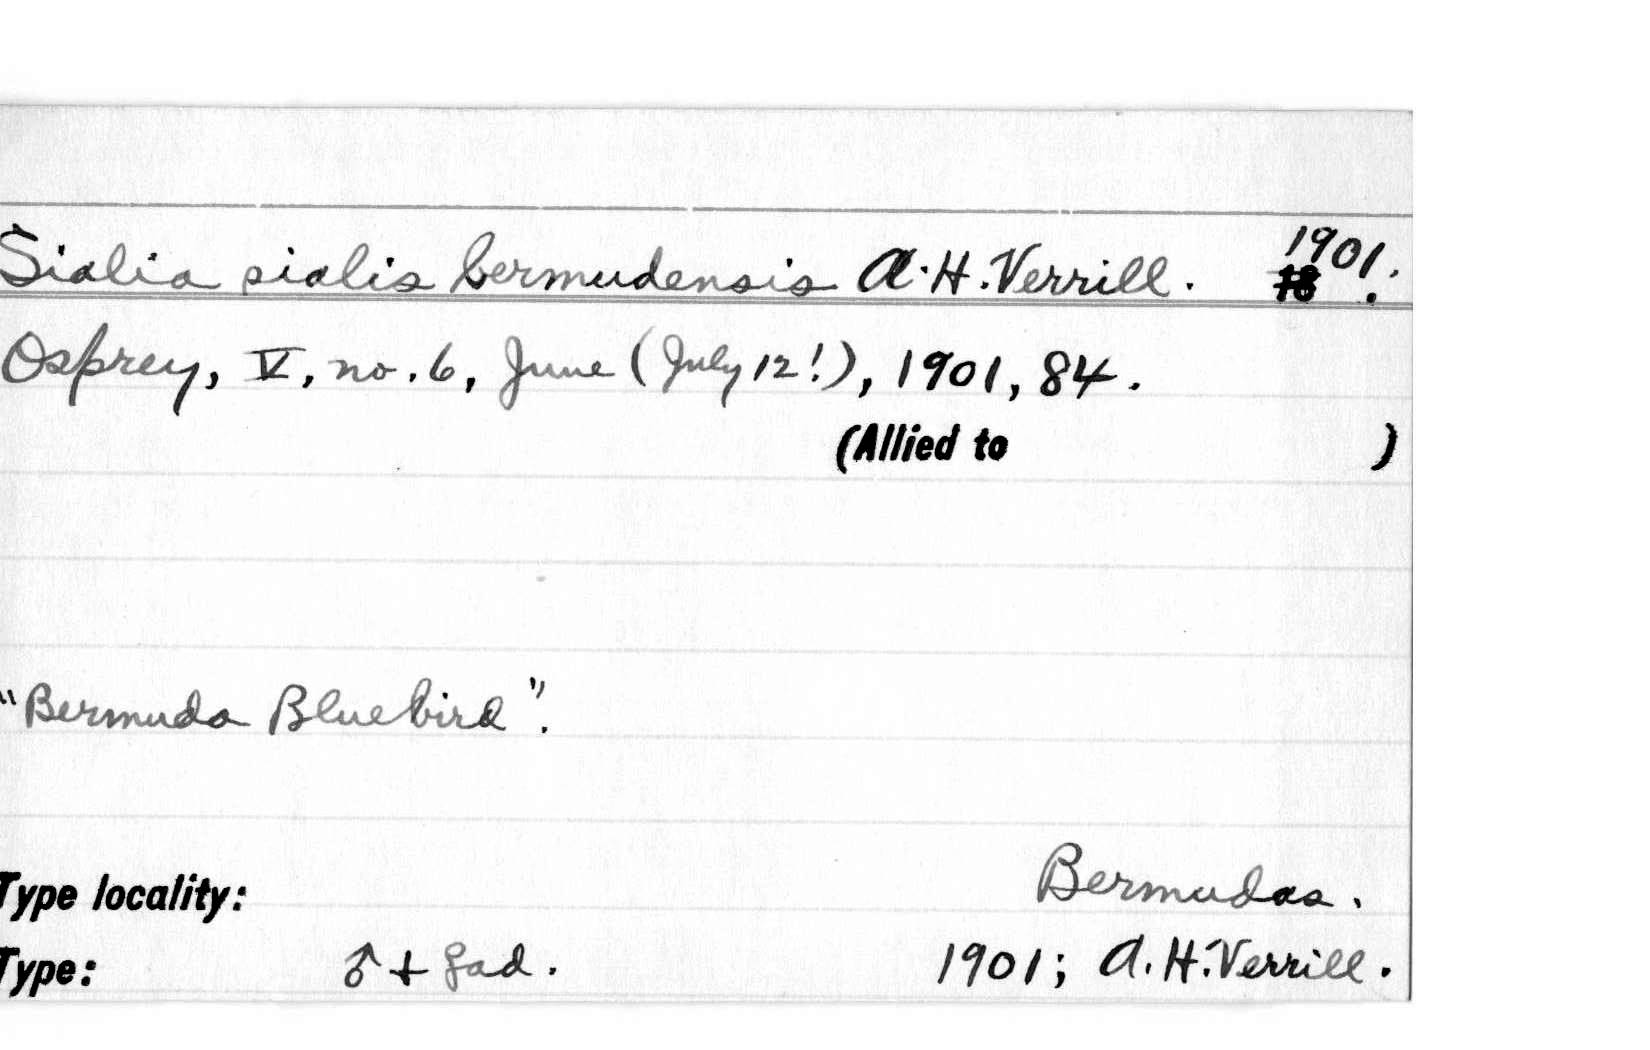 Sialia sialis bermudensis A.H.Verrill. 1901.
18 .
Osprey, V, no. 6, June (July 12!), 1901, 84.
(Allied to )
"Bermuda Bluebird".
Type locality: Bermudas.
Type: ♂ + ♀ ad. 1901; A.H.Verrill.